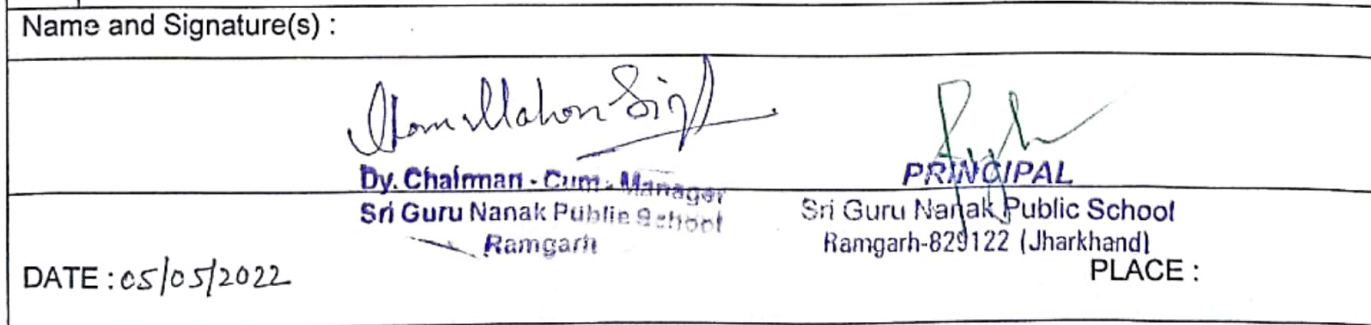 Name and Signature(s) :
Man Mohan Singh
Dy. Chairman - Cum - Manager
Sri Guru Nanak Public School
Ramgarh
PRINCIPAL
Sri Guru Nanak Public School
Ramgarh-829122 (Jharkhand)
DATE : 05/05/2022
PLACE :